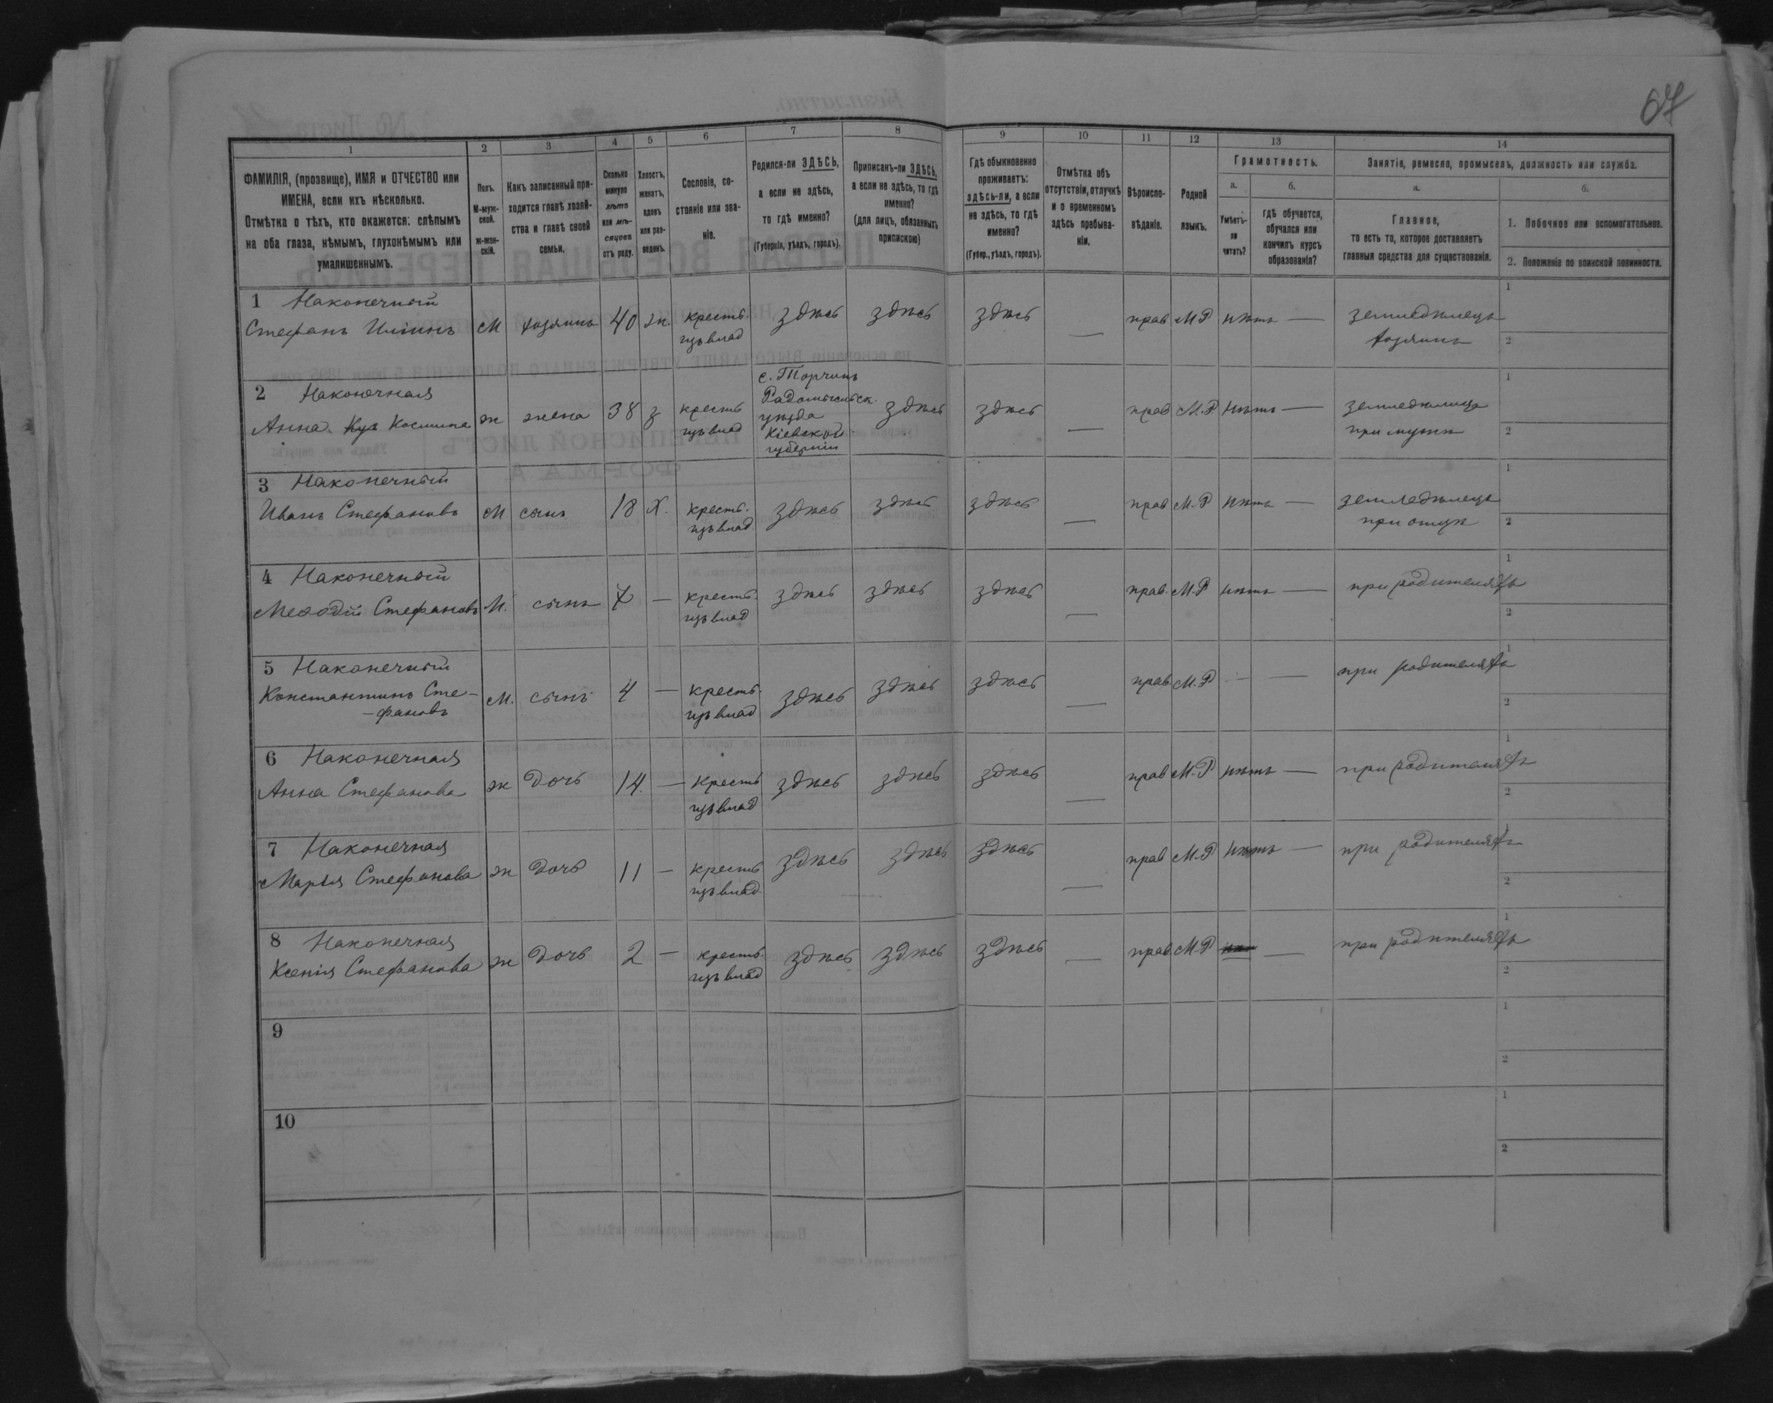 67
1 2 3 4 5 6 7 8 9 10 11 12 13 14
ФАМИЛІЯ, (прозвище), ИМЯ и ОТЧЕСТВО или
ИМЕНА, если ихъ нѣсколько.
Отмѣтка о тѣхъ, кто окажется: слѣпымъ
на оба глаза, нѣмымъ, глухонѣмымъ или
умалишеннымъ.
Полъ.
М-муж-
ской.
ж-жен-
скій.
Какъ записанный при-
ходится главѣ хозяй-
ства и главѣ своей
семьи.
Сколько
минуло
лѣтъ
или мѣ-
сяцевъ
отъ роду.
Холостъ,
женатъ,
вдовъ
или раз-
веденъ.
Сословіе, со-
стояніе или зва-
ніе.
Родился-ли ЗДѢСЬ,
а если не здѣсь,
то гдѣ именно?
(Губернія, уѣздъ, городъ).
Приписанъ-ли ЗДѢСЬ,
а если не здѣсь, то гдѣ
именно?
(для лицъ, обязанныхъ
припискою)
Гдѣ обыкновенно
проживаетъ:
здѣсь-ли, а если
не здѣсь, то гдѣ
именно?
(Губер., уѣздъ, городъ).
Отмѣтка объ
отсутствіи, отлучкѣ
и о временномъ
здѣсь пребыва-
ніи.
Вѣроиспо-
вѣданіе.
Родной
языкъ.
Грамотность.
а.
Умѣетъ-
ли
читать?
б.
гдѣ обучается,
обучался или
кончилъ курсъ
образованія?
Занятія, ремесло, промыселъ, должность или служба.
а.
Главное,
то есть то, которое доставляетъ
главныя средства для существованія.
б.
1. Побочное или вспомогательное.
2. Положеніе по воинской повинности.
1 Наконечный
Стефанъ Ильинъ М хозяинъ 40 ж. крестъ. здѣсь здѣсь здѣсь — прав М.Р нѣтъ — земледѣлецъ 1
изъ влад хозяинъ 2
2 Наконечная с. Торчинъ 1
Анна Космина ж жена 38 з крестъ Радомысльск. здѣсь здѣсь — прав М.Р нѣтъ — земледѣлица
изъ влад уѣзда при мужѣ 2
Кіевской
губерніи
3 Наконечный 1
Иванъ Стефановъ М сынъ 18 х. крестъ. здѣсь здѣсь здѣсь — прав М.Р нѣтъ — земледѣлецъ
изъ влад при отцѣ 2
4 Наконечный 1
Меѳодій Стефановъ М. сынъ — крестъ. здѣсь здѣсь здѣсь — прав. М.Р нѣтъ — при родителяхъ
изъ влад 2
5 Наконечный 1
Константинъ Сте- М. сынъ 4 — крестъ. здѣсь здѣсь здѣсь — прав М.Р — — при родителяхъ
-фановъ изъ влад 2
6 Наконечная 1
Анна Стефанова ж дочь 14 — крестъ здѣсь здѣсь здѣсь — прав М.Р нѣтъ — при родителяхъ
изъ влад 2
7 Наконечная 1
Марія Стефанова ж дочь 11 — крестъ здѣсь здѣсь здѣсь — прав М.Р нѣтъ — при родителяхъ
изъ влад. 2
8 Наконечная 1
Ксенія Стефанова ж дочь 2 — крестъ. здѣсь здѣсь здѣсь — прав М.Р — при родителяхъ
изъ влад 2
9 1
2
10 1
2